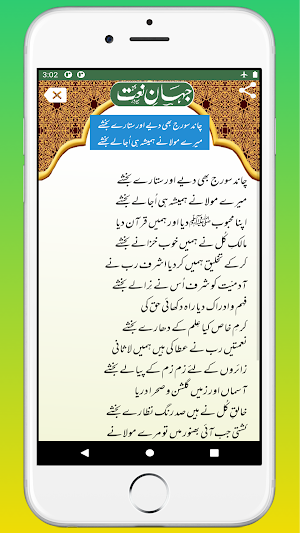 3:02
جہانِ نعت
چاند سورج بھی دیے اور ستارے بخشے
میرے مولا نے ہمیشہ ہی اُجالے بخشے
چاند سورج بھی دیے اور ستارے بخشے
میرے مولا نے ہمیشہ ہی اُجالے بخشے
اپنا محبوب ﷺ دیا اور ہمیں قرآن دیا
مالکِ کُل نے ہمیں خوب خزانے بخشے
کر کے تخلیق ہمیں کر دیا اشرف رب نے
آدمیت کو شرف اُس نے نرالے بخشے
فہم و ادراک دیا راہ دکھائی حق کی
کرم خاص کیا علم کے دھارے بخشے
نعمتیں رب نے عطا کی ہیں ہمیں لاثانی
زائروں کے لئے زم زم کے پیالے بخشے
آسماں اور زمیں گلشن و صحرا دریا
خالقِ کُل نے ہیں صد رنگ نظارے بخشے
کشتی جب آئی بھنور میں تو مرے مولا نے